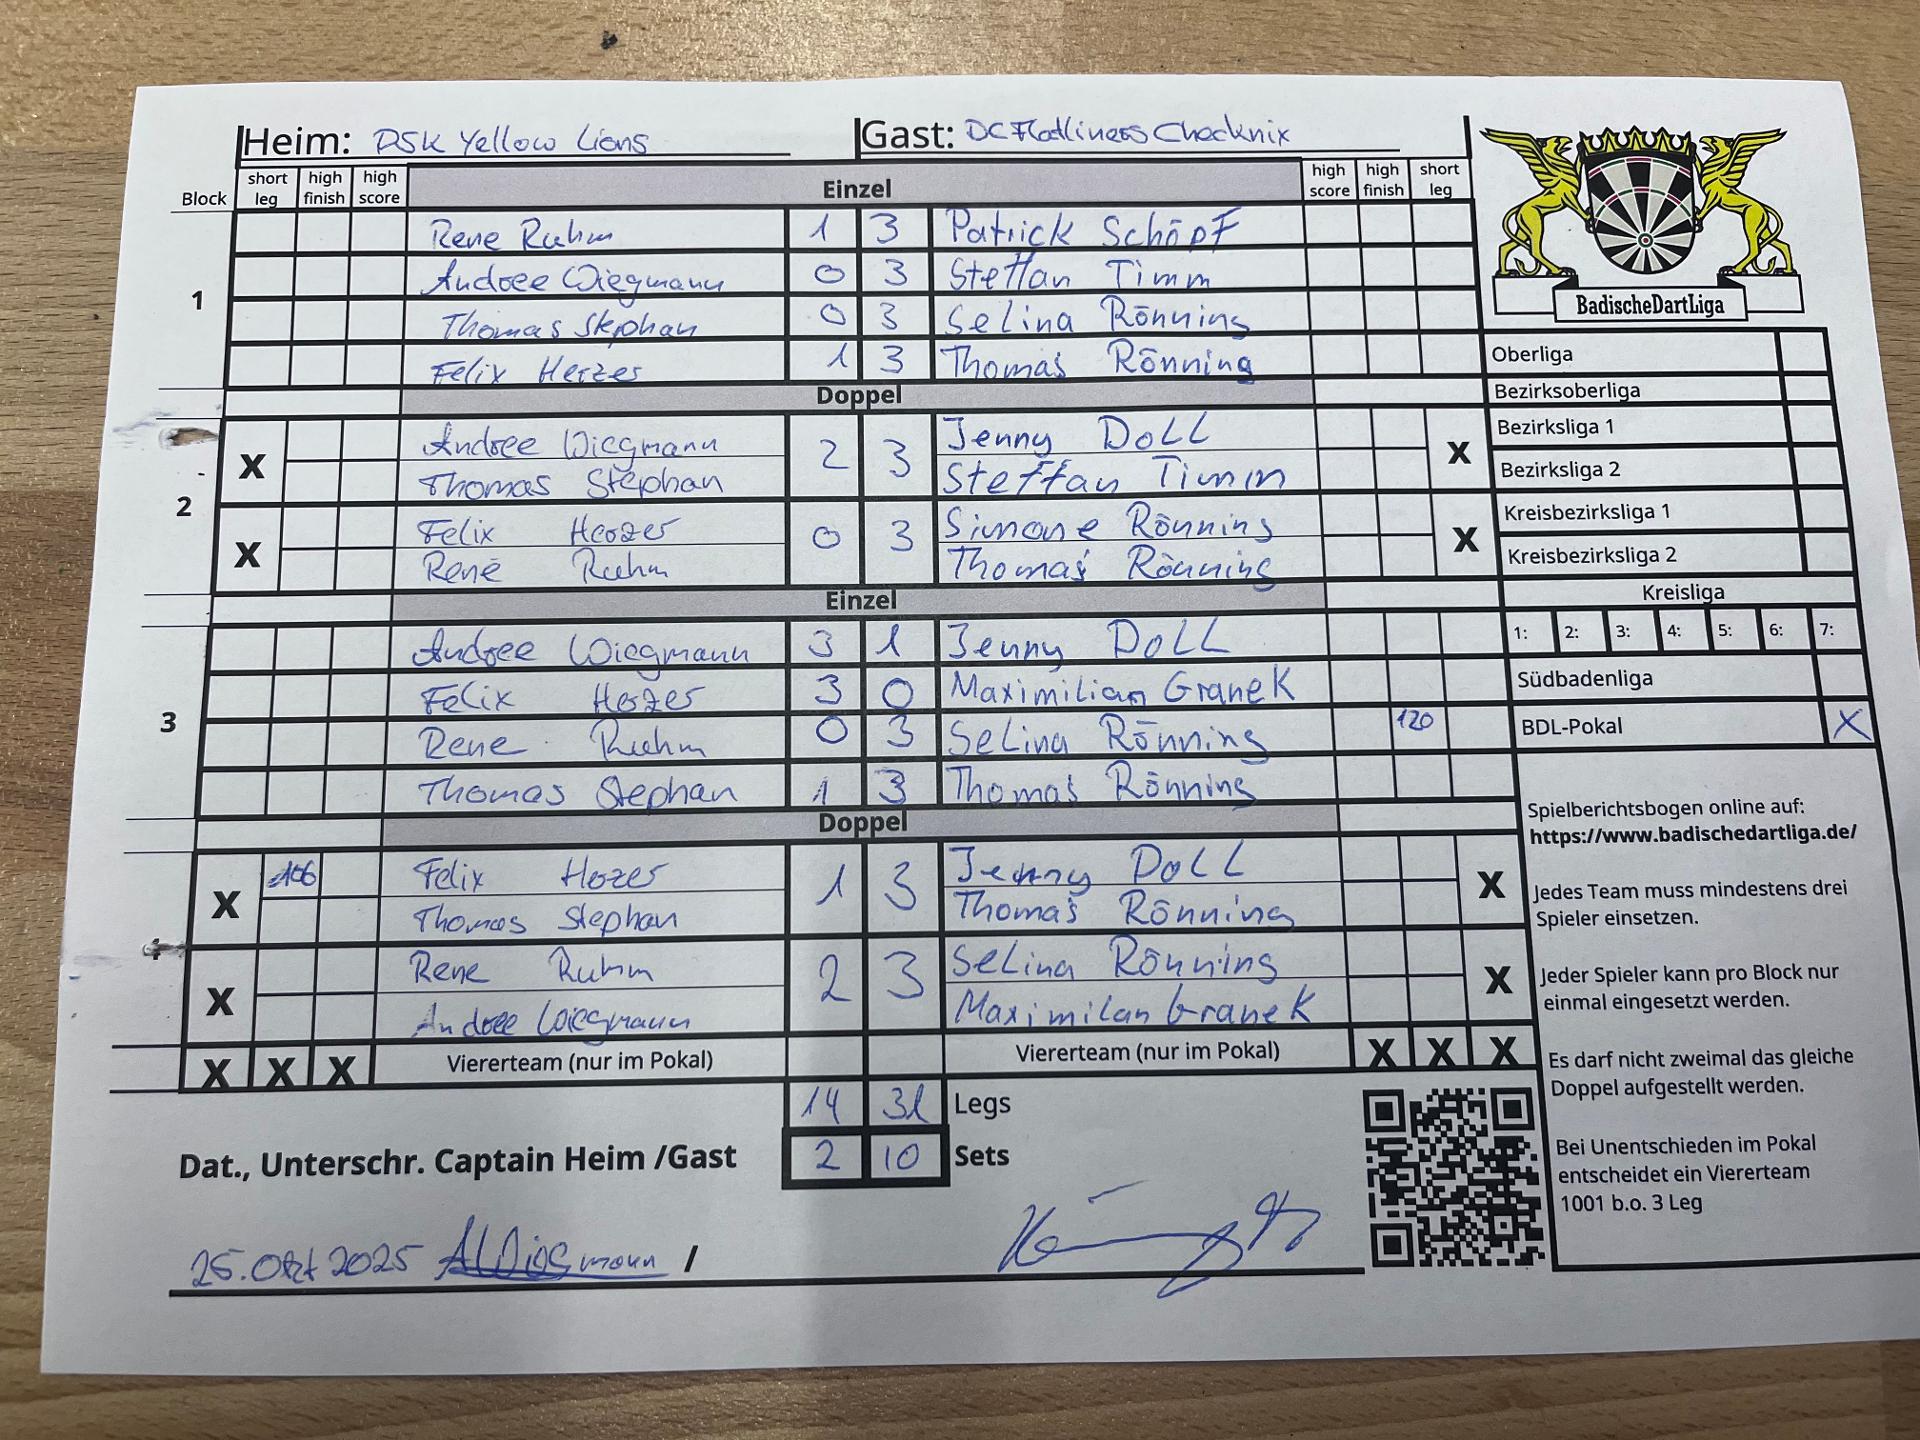 Heim: DSK Yellow Lions Gast: DC Flatliners Checknix
Block short leg high finish high score Einzel high score high finish short leg
1
Rene Ruhm 1 3 Patrick Schöpf
Andree Wiegmann 0 3 Steffan Timm
Thomas Stephan 0 3 Selina Rönning
Felix Herzer 1 3 Thomas Rönning
Doppel
2
X Andree Wiegmann 2 3 Jenny Doll X
Thomas Stephan Steffan Timm
X Felix Herzer 0 3 Simone Rönning X
René Ruhm Thomas Rönning
Einzel
3
Andree Wiegmann 3 1 Jenny Doll
Felix Herzer 3 0 Maximilian Granek
Rene Ruhm 0 3 Selina Rönning 120
Thomas Stephan 1 3 Thomas Rönning
Doppel
X 106 Felix Herzer 1 3 Jenny Doll X
Thomas Stephan Thomas Rönning
4
X Rene Ruhm 2 3 Selina Rönning X
Andree Wiegmann Maximilan Granek
X X X Viererteam (nur im Pokal) Viererteam (nur im Pokal) X X X
14 31 Legs
Dat., Unterschr. Captain Heim /Gast 2 10 Sets
25. Okt 2025 AWiegmann /
BadischeDartLiga
Oberliga
Bezirksoberliga
Bezirksliga 1
Bezirksliga 2
Kreisbezirksliga 1
Kreisbezirksliga 2
Kreisliga
1: 2: 3: 4: 5: 6: 7:
Südbadenliga
BDL-Pokal X
Spielberichtsbogen online auf:
https://www.badischedartliga.de/
Jedes Team muss mindestens drei
Spieler einsetzen.
Jeder Spieler kann pro Block nur
einmal eingesetzt werden.
Es darf nicht zweimal das gleiche
Doppel aufgestellt werden.
Bei Unentschieden im Pokal
entscheidet ein Viererteam
1001 b.o. 3 Leg